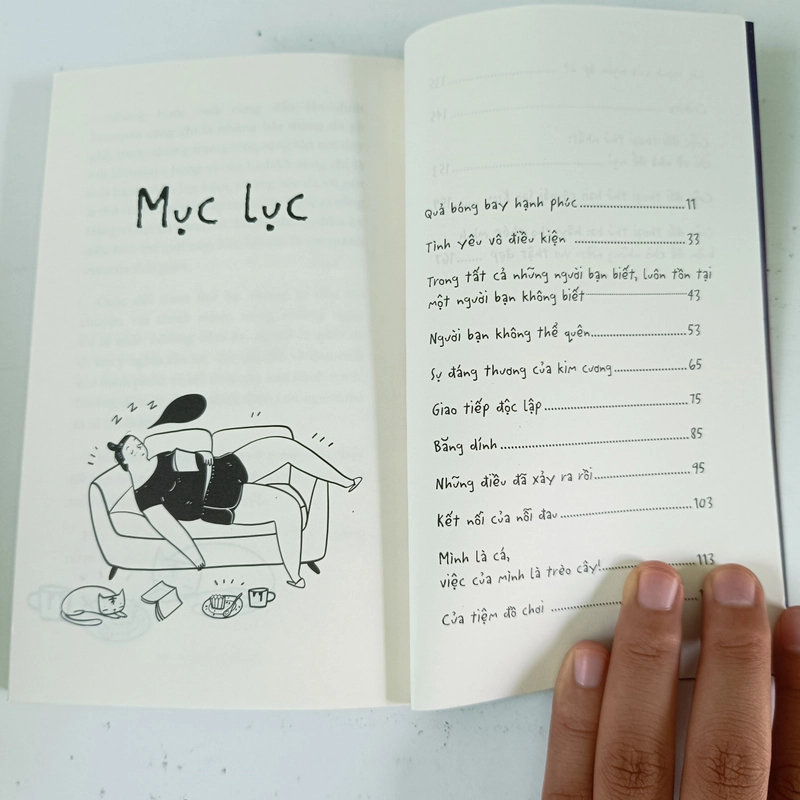 Mục lục
z z z z
Quả bóng bay hạnh phúc 11
Tình yêu vô điều kiện 33
Trong tất cả những người bạn biết, luôn tồn tại
một người bạn không biết 43
Người bạn không thể quên 53
Sự đáng thương của kim cương 65
Giao tiếp độc lập 75
Băng dính 85
Những điều đã xảy ra rồi 95
Kết nối của nỗi đau 103
Mình là cá,
việc của mình là trèo cây! 113
Cửa tiệm đồ chơi